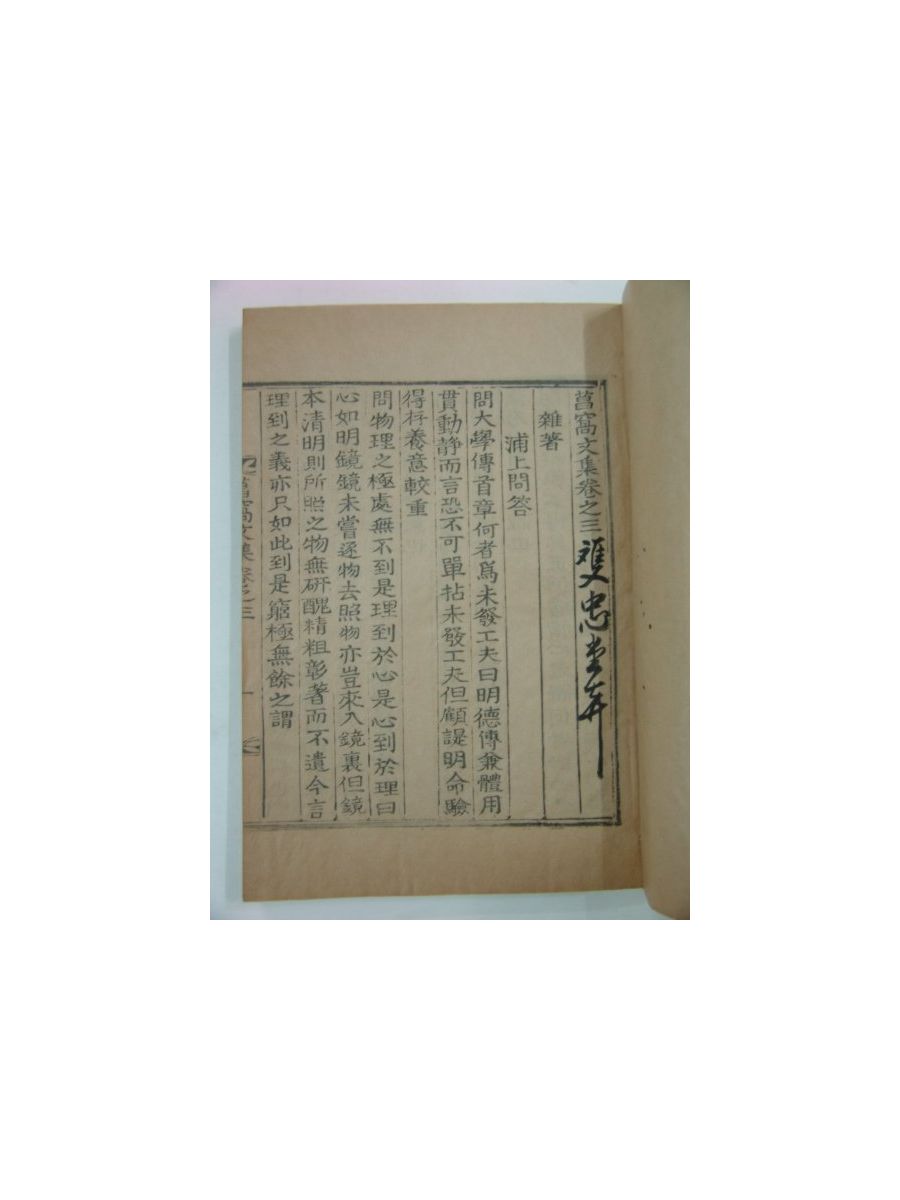 菖窩文集卷之三 雙忠堂弆
雜著
浦上問答
問大學傳首章何者爲未發工夫曰明德傳兼體用
貫動静而言恐不可單拈未發工夫但顧諟明命驗
得存養意較重
問物理之極處無不到是理到於心是心到於理曰
心如明鏡鏡未嘗逐物去照物亦豈來入鏡裏但鏡
本清明則所照之物無硏醜精粗彰著而不遺今言
理到之義亦只如此到是窮極無餘之謂
菖窩文集 卷之三 一